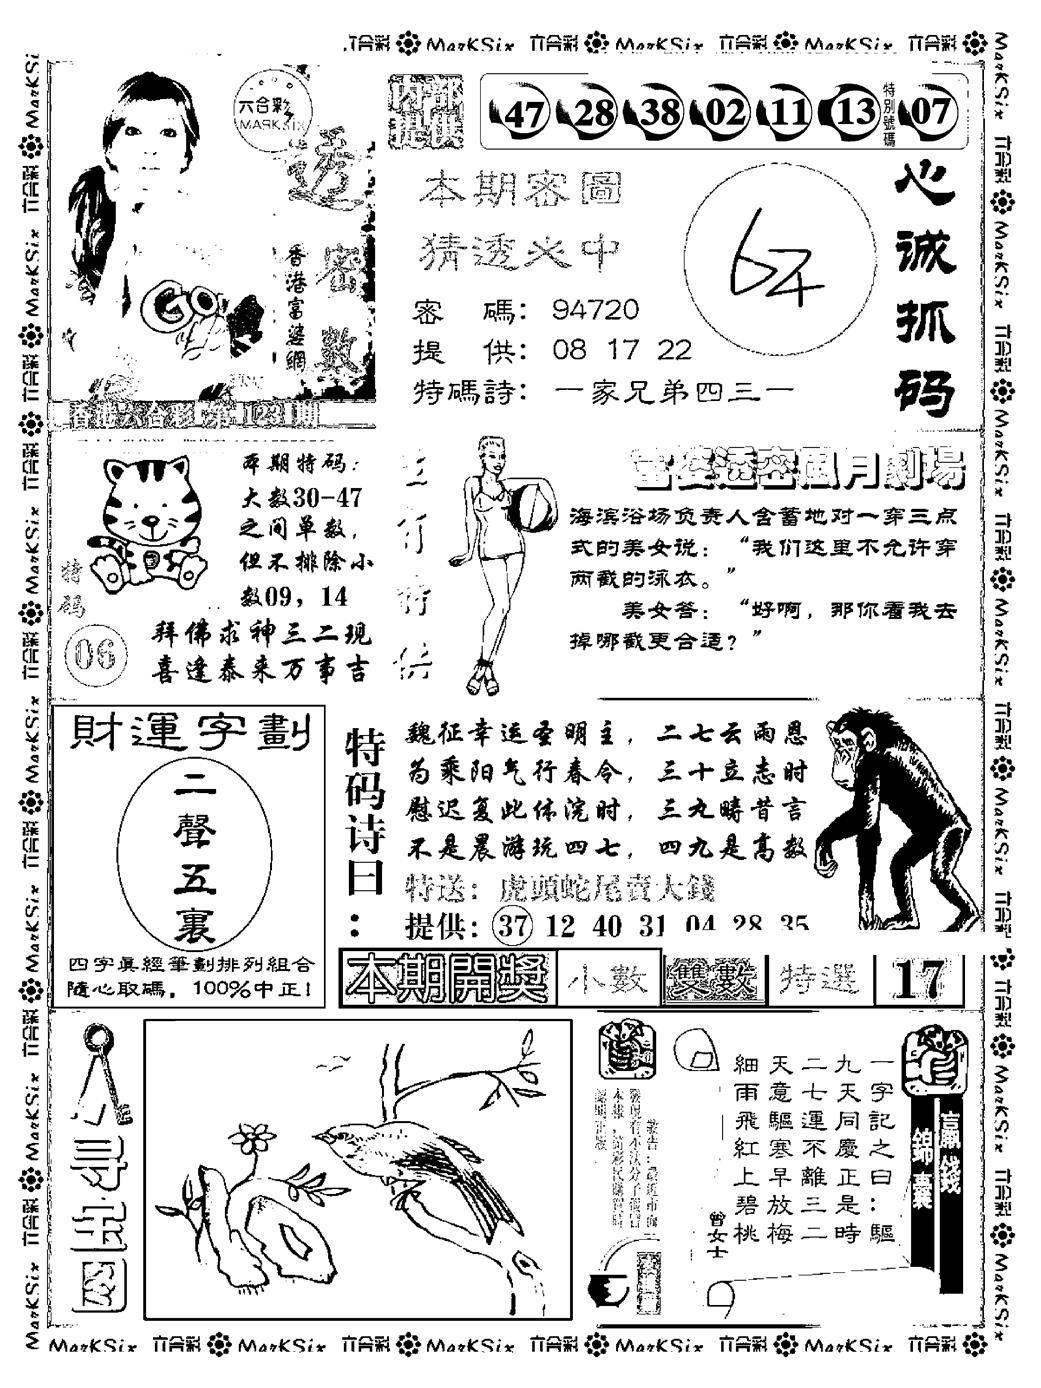 六合彩 MarKSix 六合彩 MarKSix 六合彩 MarKSix 六合彩
六合彩
MARKSIX
透密數
香港富婆網
香港六合彩
內部
提供
47 28 38 02 11 13 特別號碼 07
本期密圖
猜透必中
密 碼： 94720
提 供： 08 17 22
特碼詩： 一家兄弟四三一
64
心诚抓码
本期特码：
大数30-47
之间单数，
但不排除小
数09，14
特码
06
拜佛求神三二现
喜逢泰来万事吉
富婆透密風月劇場
海滨浴场负责人含蓄地对一穿三点
式的美女说：“我们这里不允许穿
两截的泳衣。”
美女答：“好啊，那你看我去
掉哪截更合适？”
財運字劃
二聲五裏
四字真經筆劃排列組合
隨心取碼，100%中正！
特码诗曰：
魏征幸运圣明主，二七云雨恩
为乘阳气行春令，三十立志时
慰迟复此体浣时，三九畴昔言
不是晨游玩四七，四九是高数
特送：虎頭蛇尾賣大錢
提供：37 12 40 31 04 28 35
本期開獎 小數 雙數 特選 17
寻宝图
赢錢
錦囊
一字記之曰：驅
九天同慶正是時
二七運不離三二
天意驅寒早放梅
細雨飛紅上碧桃
曾女士
MarKSix 六合彩 MarKSix 六合彩 MarKSix 六合彩 MarKSix 六合彩 MarKSix 六合彩